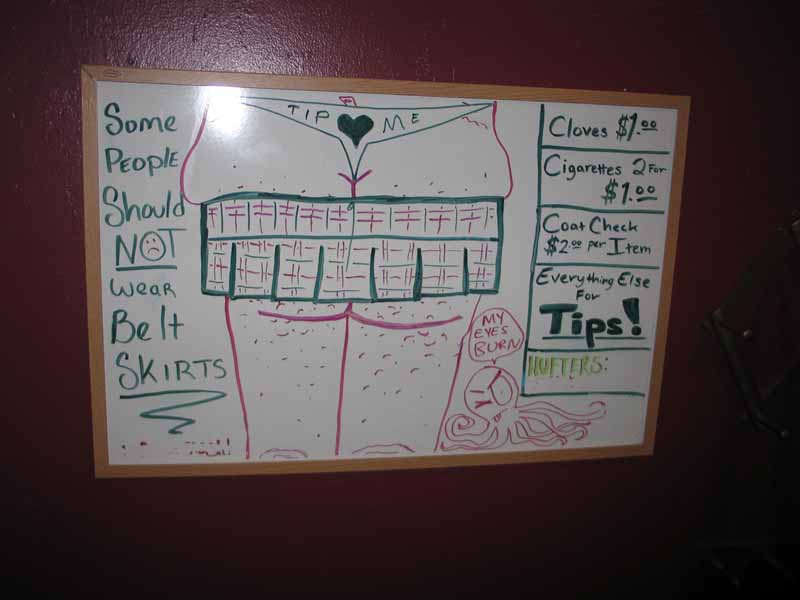 Some
People
Should
NOT
wear
Belt
SKIRTS
TIP ME
MY
EYES
BURN
Cloves $1.00
Cigarettes 2 For
$1.00
Coat Check
$2.00 per Item
Everything Else
For
Tips!
HUFTERS: